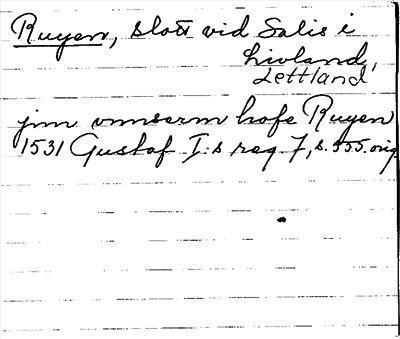 Ruyen, slott vid Salis i
Livland,
Lettland
jnn vnnserm hofe Ruyen
1531 Gustaf I:s reg 7, s. 555. orig.